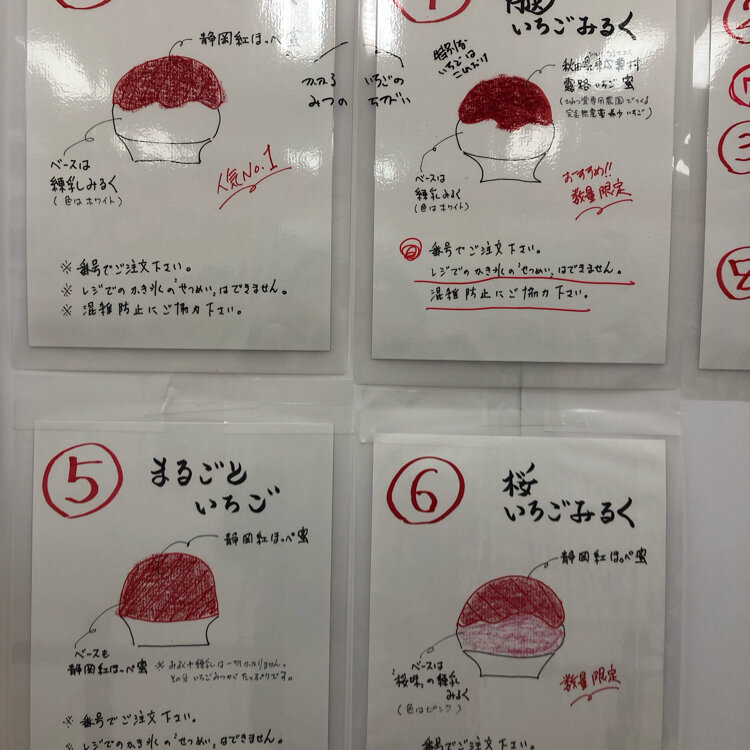 静岡紅ほっぺ蜜
ベースは
練乳みるく
(色はホワイト)
人気No.1
※ 番号でご注文下さい。
※ レジでのかき氷の「せつめい」はできません。
※ 混雑防止にご協力下さい。
かかる
みつの
いちごの
ちがい
いちごみるく
特別な
いちごは
これだけ
露路いちご蜜
ベースは
練乳みるく
(色はホワイト)
おすすめ!!
数量限定
番号でご注文下さい。
レジでのかき氷の「せつめい」はできません。
混雑防止にご協力下さい。
5
まるごと
いちご
静岡紅ほっぺ蜜
ベースも
静岡紅ほっぺ蜜
※ みるくや練乳は一切かかりません。
その分いちごみつがたっぷりです。
※ 番号でご注文下さい。
※ レジでのかき氷の「せつめい」はできません。
6
桜
いちごみるく
静岡紅ほっぺ蜜
ベースは
「桜味」の練乳
みるく
(色はピンク)
数量限定
番号でご注文下さい。